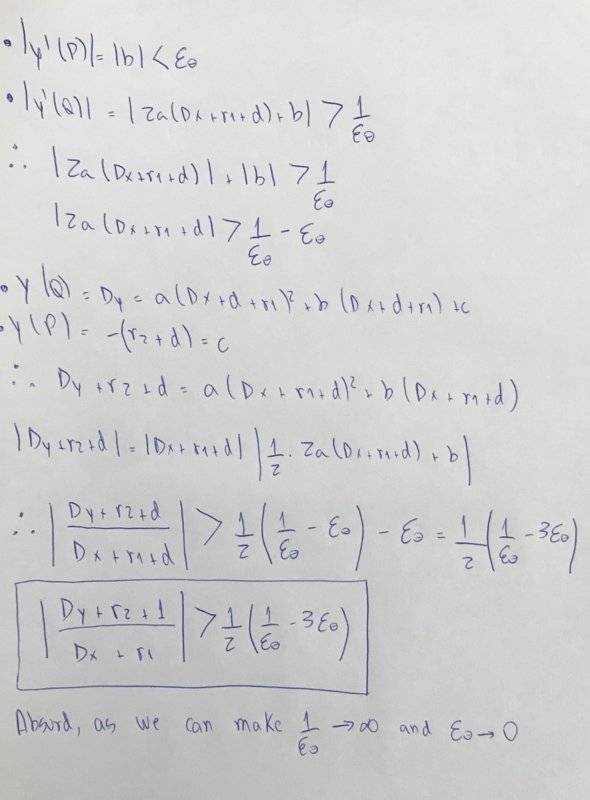 • |y'(P)| = |b| < ε₀
• |y'(Q)| = |2a(Dx+r1+d)+b| > 1/ε₀
∴ |2a(Dx+r1+d)| + |b| > 1/ε₀
|2a(Dx+r1+d| > 1/ε₀ - ε₀
• y(Q) = Dy = a(Dx+d+r1)² + b(Dx+d+r1)+c
• y(P) = -(r2+d) = c
∴ Dy+r2+d = a(Dx+r1+d)² + b(Dx+r1+d)
|Dy+r2+d| = |Dx+r1+d| |1/2 · 2a(Dx+r1+d) + b|
∴ |(Dy+r2+d)/(Dx+r1+d)| > 1/2 (1/ε₀ - ε₀) - ε₀ = 1/2 (1/ε₀ - 3ε₀)
|(Dy+r2+1)/(Dx + r1)| > 1/2 (1/ε₀ - 3ε₀)
Absurd, as we can make 1/ε₀ → ∞ and ε₀ → 0